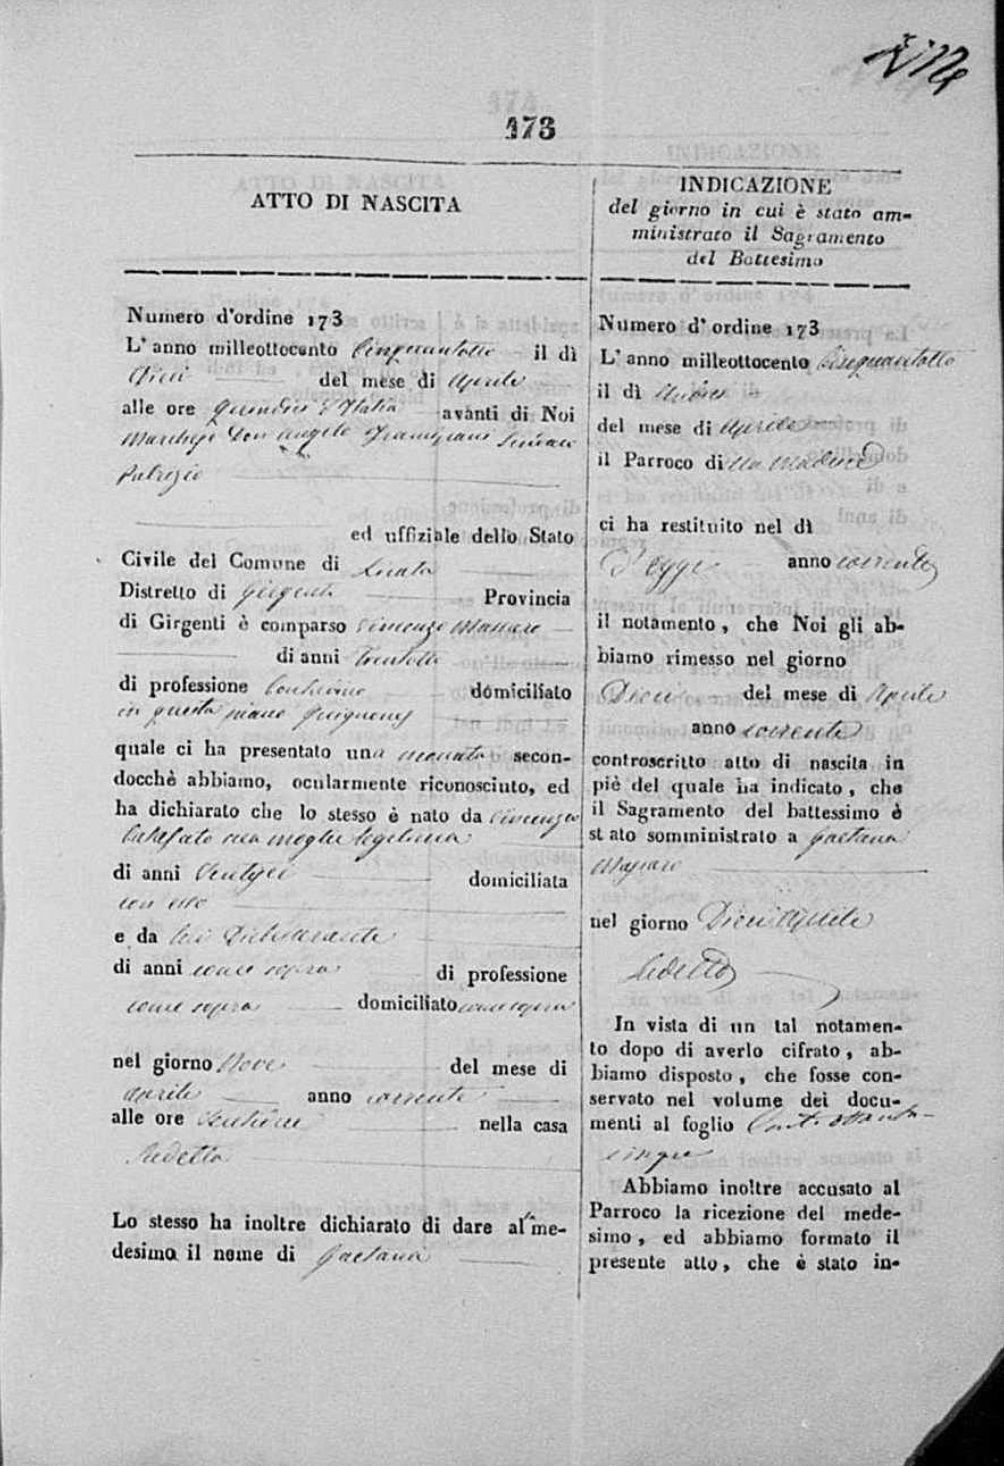 173
ATTO DI NASCITA
Numero d'ordine 173
L'anno milleottocento Cinquantotto il dì
Dieci del mese di Aprile
alle ore quindici d'Italia avanti di Noi
Marchese Don Angelo Senatore
Patrizio
ed uffiziale dello Stato
Civile del Comune di Licata
Distretto di Girgenti Provincia
di Girgenti è comparso Vincenzo Massaro
di anni trentotto
di professione domiciliato
in questa piano
quale ci ha presentato una neonata secon-
docchè abbiamo, ocularmente riconosciuto, ed
ha dichiarato che lo stesso è nato da Vincenza
sua moglie legittima
di anni Ventisei domiciliata
con esso
e da lui Dichiarante
di anni come sopra di professione
come sopra domiciliato come sopra
nel giorno Nove del mese di
Aprile anno corrente
alle ore nella casa
sudetta
Lo stesso ha inoltre dichiarato di dare al me-
desima il nome di Gaetana
INDICAZIONE
del giorno in cui è stato am-
ministrato il Sagramento
del Battesimo
Numero d'ordine 173
L'anno milleottocento Cinquantotto
il dì Undici
del mese di Aprile
il Parroco di lla Madrice
ci ha restituito nel dì
D'oggi anno corrente
il notamento, che Noi gli ab-
biamo rimesso nel giorno
Dieci del mese di Aprile
anno corrente
controscritto atto di nascita in
piè del quale ha indicato, che
il Sagramento del battessimo è
st ato somministrato a Gaetana
Massaro
nel giorno Dieci Aprile
sudetto
In vista di un tal notamen-
to dopo di averlo cifrato, ab-
biamo disposto, che fosse con-
servato nel volume dei docu-
menti al foglio Centottanta-
cinque
Abbiamo inoltre accusato al
Parroco la ricezione del mede-
simo, ed abbiamo formato il
presente atto, che è stato in-